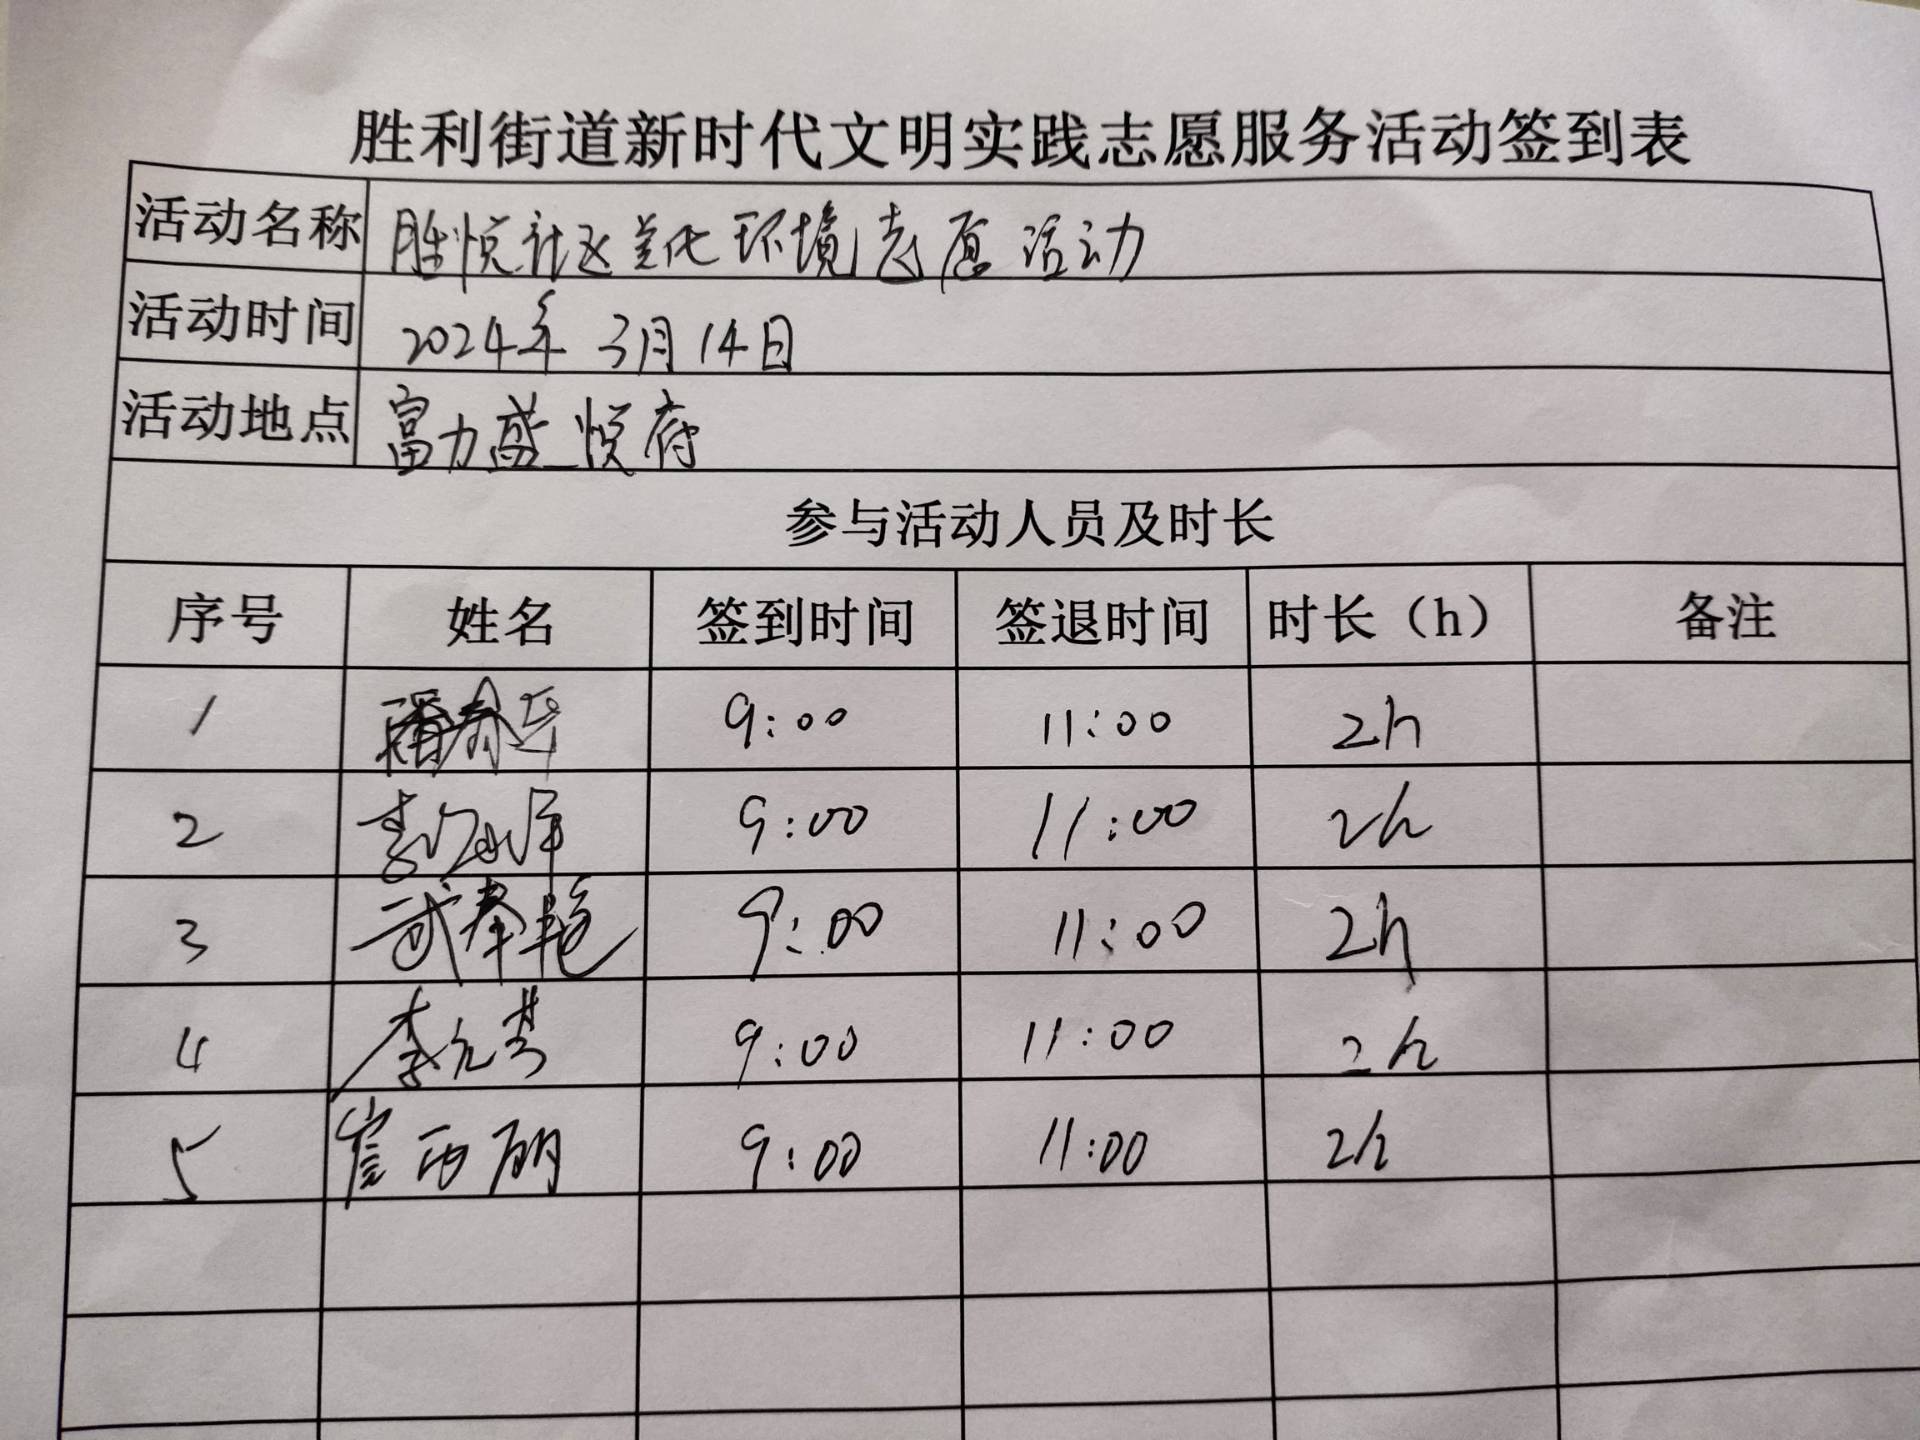 胜利街道新时代文明实践志愿服务活动签到表
活动名称 胜悦社区美化环境志愿活动
活动时间 2024年3月14日
活动地点 富力盛悦府
参与活动人员及时长
序号 姓名 签到时间 签退时间 时长（h） 备注
1 9:00 11:00 2h
2 9:00 11:00 2h
3 武春艳 9:00 11:00 2h
4 李元芳 9:00 11:00 2h
5 崔西朋 9:00 11:00 2h